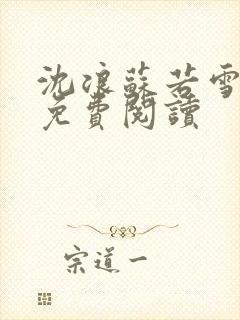 沈浪蘇若雪
免費閱讀
宗道一